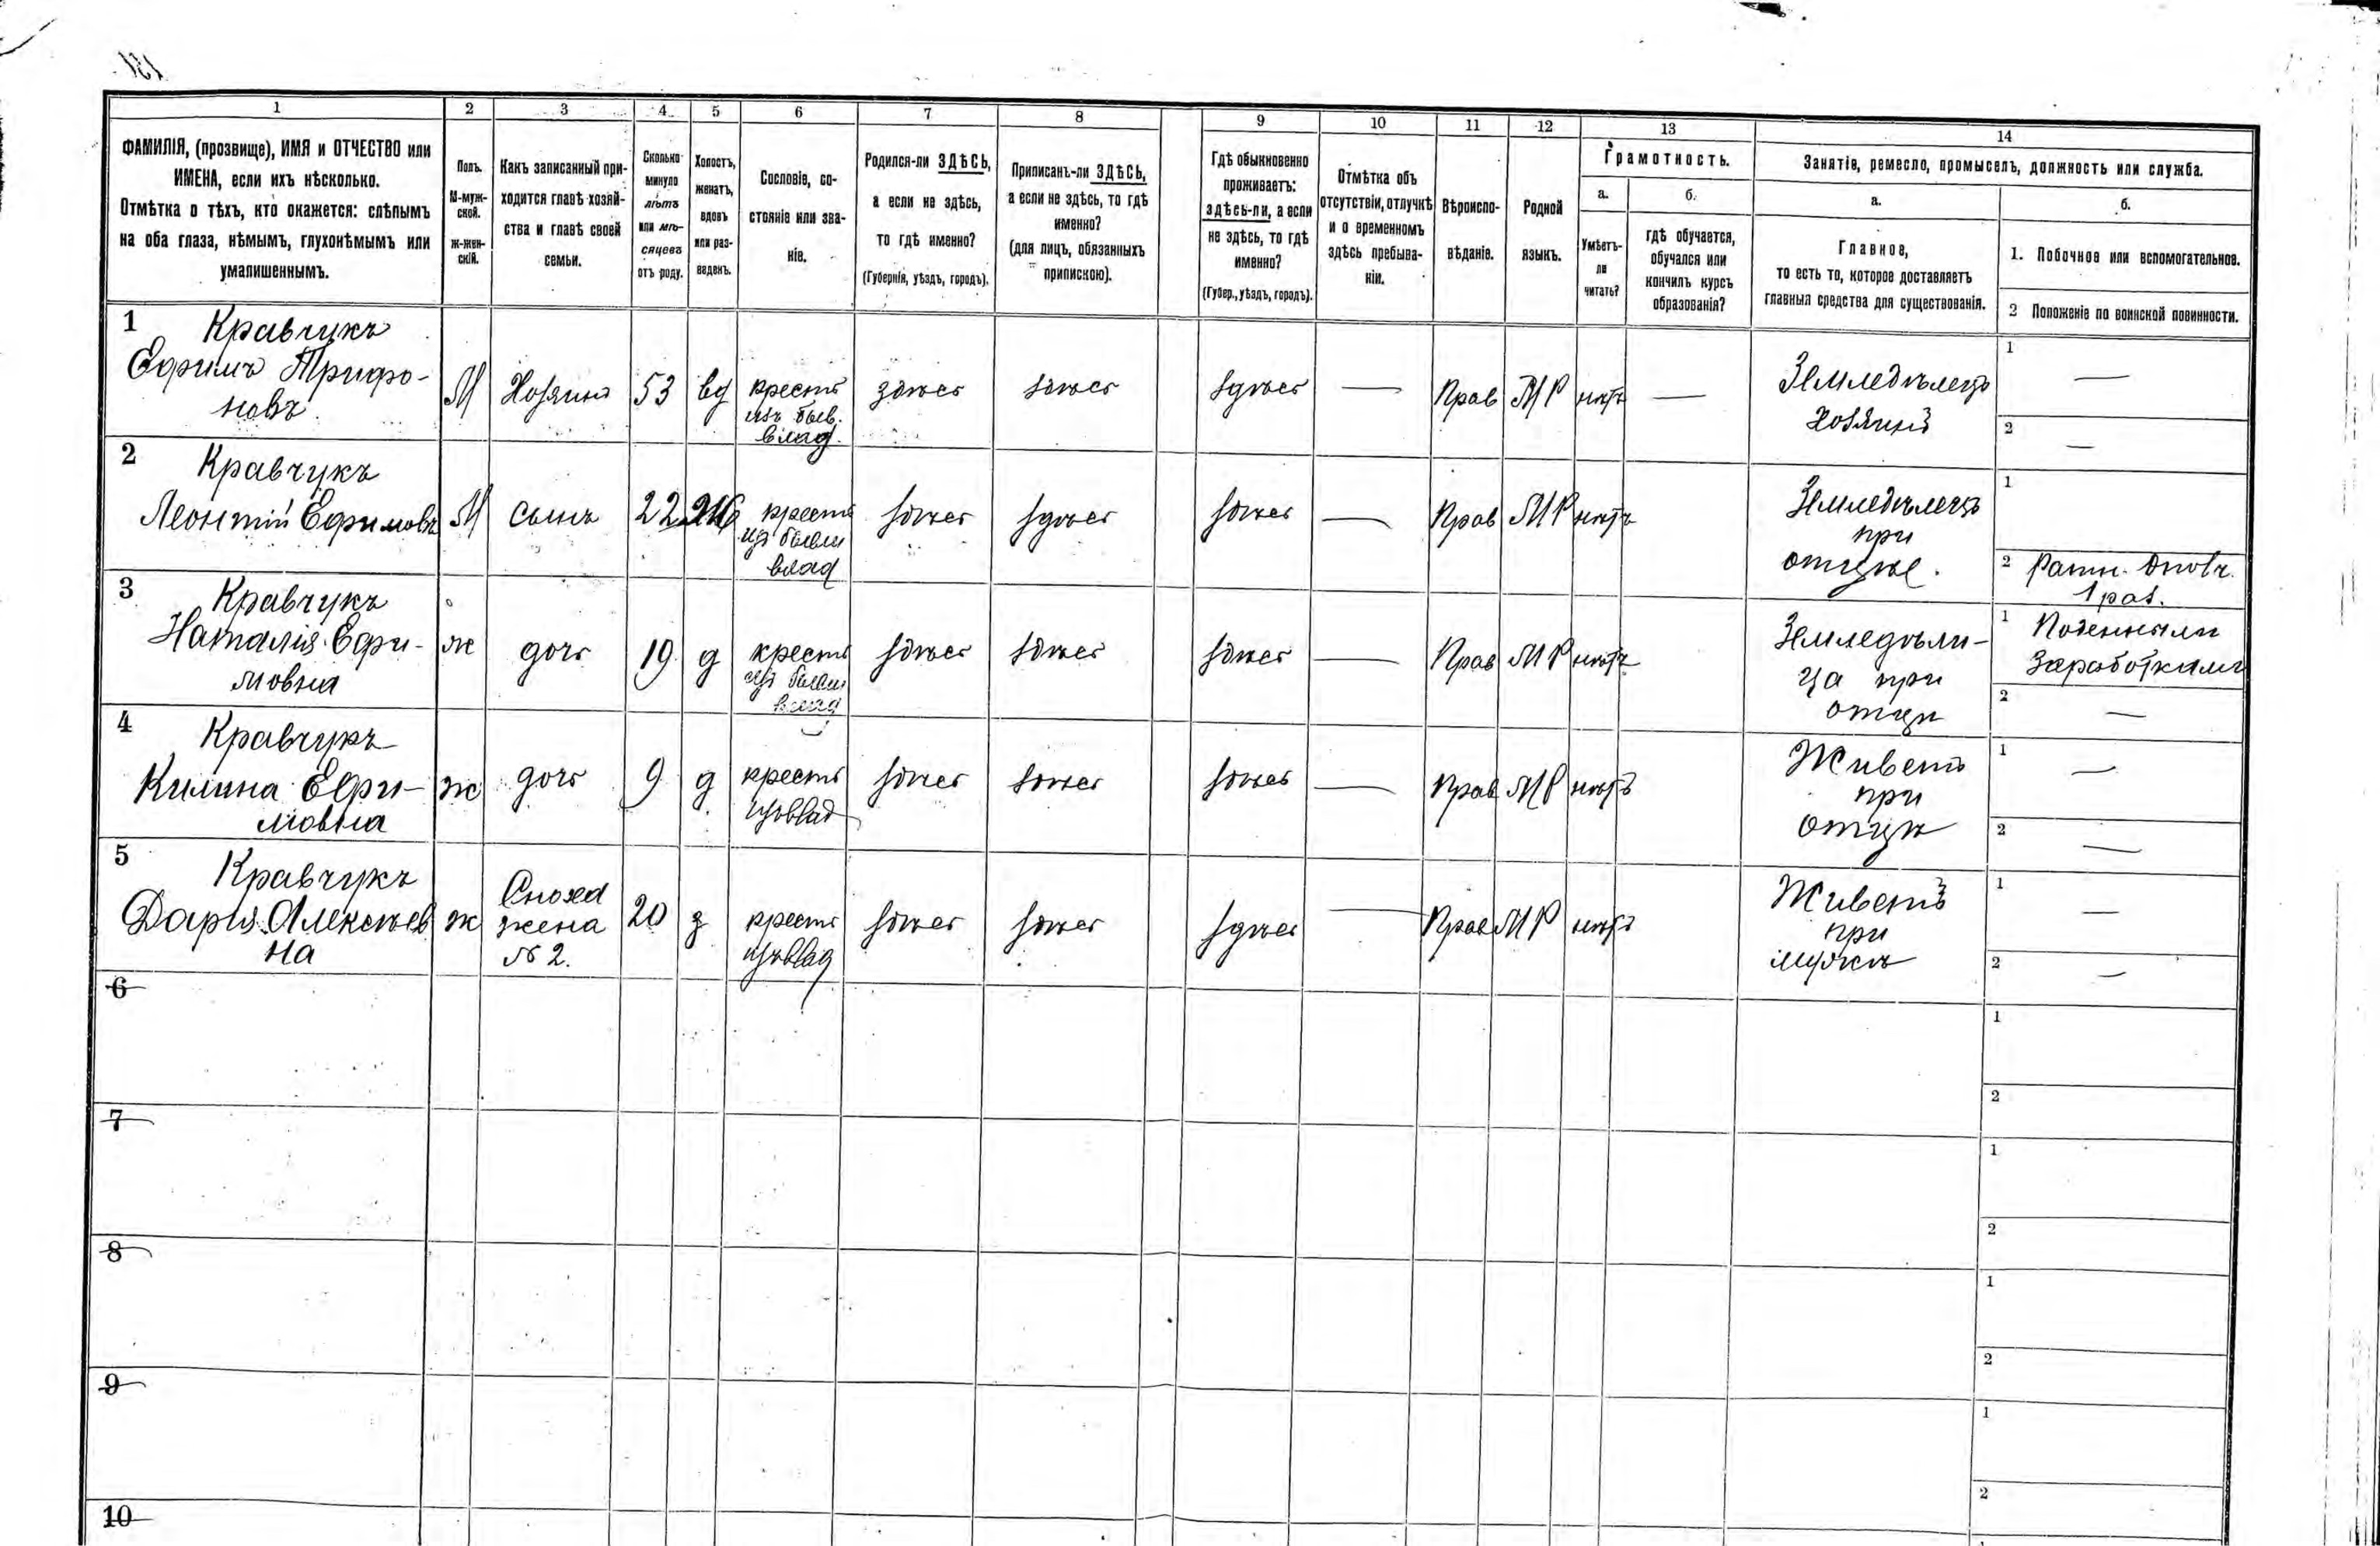 1 2 3 4 5 6 7 8 9 10 11 12 13 14
ФАМИЛІЯ, (прозвище), ИМЯ и ОТЧЕСТВО или
ИМЕНА, если ихъ нѣсколько.
Отмѣтка о тѣхъ, кто окажется: слѣпымъ
на оба глаза, нѣмымъ, глухонѣмымъ или
умалишеннымъ.
Полъ.
М-муж-
ской.
Ж-жен-
скій.
Какъ записанный при-
ходится главѣ хозяй-
ства и главѣ своей
семьи.
Сколько
минуло
лѣтъ
или мѣ-
сяцевъ
отъ роду.
Холостъ,
женатъ,
вдовъ
или раз-
веденъ.
Сословіе, со-
стояніе или зва-
ніе.
Родился-ли ЗДѢСЬ,
а если не здѣсь,
то гдѣ именно?
(Губернія, уѣздъ, городъ).
Приписанъ-ли ЗДѢСЬ,
а если не здѣсь, то гдѣ
именно?
(для лицъ, обязанныхъ
припискою).
Гдѣ обыкновенно
проживаетъ:
здѣсь-ли, а если
не здѣсь, то гдѣ
именно?
(Губер., уѣздъ, городъ).
Отмѣтка объ
отсутствіи, отлучкѣ
и о временномъ
здѣсь пребыва-
ніи.
Вѣроиспо-
вѣданіе.
Родной
языкъ.
Грамотность.
а.
Умѣетъ-
ли
читать?
б.
гдѣ обучается,
обучался или
кончилъ курсъ
образованія?
Занятіе, ремесло, промыселъ, должность или служба.
а.
Главное,
то есть то, которое доставляетъ
главныя средства для существованія.
б.
1. Побочное или вспомогательное.
2 Положеніе по воинской повинности.
1 Кравчукъ
Ефимъ Трифо-
новъ
М Хозяинъ 53 вд крестъ
изъ бывъ.
влад.
здѣсь здѣсь здѣсь — Прав МР нѣтъ —
Земледѣлецъ
хозяинъ
1 —
2 —
2 Кравчукъ
Леонтій Ефимовъ
М сынъ 22 крест
изъ бывш
влад
здѣсь здѣсь здѣсь — Прав МР нѣтъ
Земледѣлецъ
при
отцѣ.
1
2 Ратн.
1 раз.
3 Кравчукъ
Наталія Ефи-
мовна
ж дочь 19 д крест
изъ бывш
влад
здѣсь здѣсь здѣсь — Прав МР нѣтъ
Земледѣли-
ца при
отцѣ
1 Поденными
Заработками
2 —
4 Кравчукъ
Килина Ефи-
мовна
ж дочь 9 д крест
изъ влад
здѣсь здѣсь здѣсь — Прав МР нѣтъ
Живетъ
при
отцѣ
1 —
2 —
5 Кравчукъ
Дарія Алексѣев
на
ж Сноха
жена
№ 2.
20 з крест
изъ влад
здѣсь здѣсь здѣсь — Прав МР нѣтъ
Живетъ
при
мужѣ
1 —
2 —
6
1
2
7
1
2
8
1
2
9
1
2
10